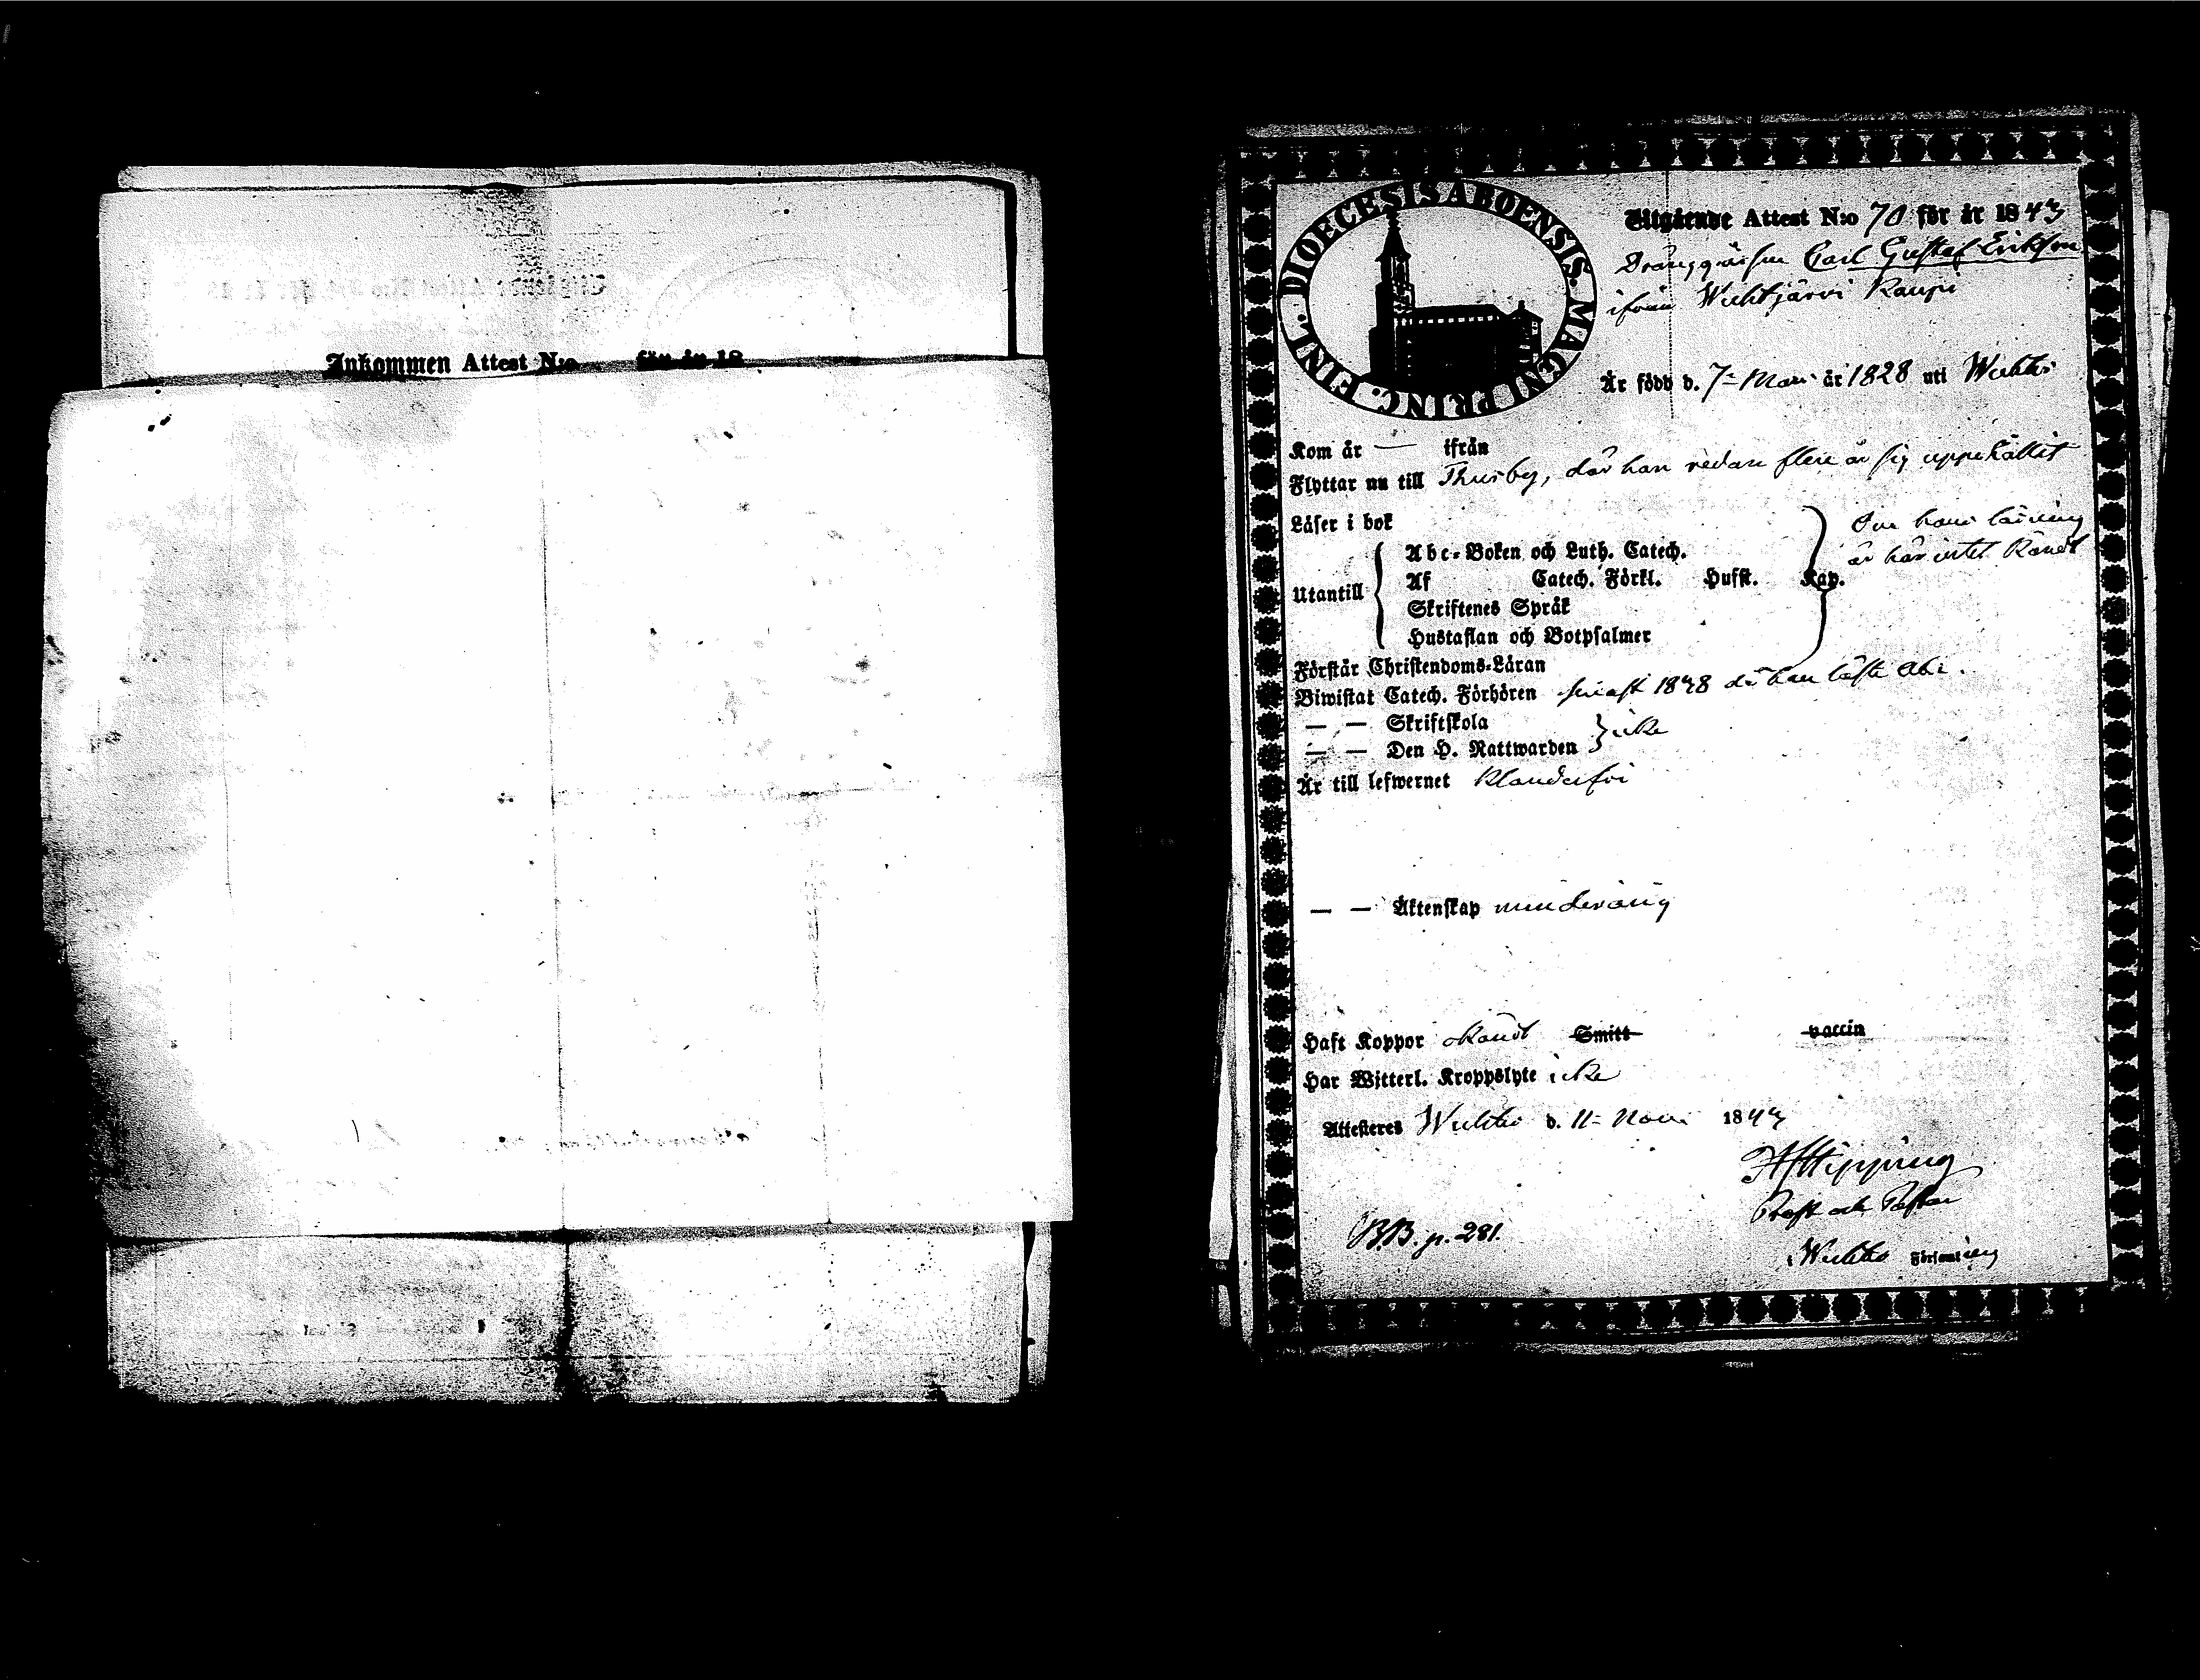 Inkommen Attest N:o för år 18
DIOECESIS ABOENSIS. MAGNI PRINC. FINL.
Utgående Attest N:o 70 för år 1843
Dränggåssen Carl Gustaf Erikson
ifrån Wichtjärvi Kaupi
Är född d. 7= Mars år 1828 uti Wichtis
Kom år — ifrån
Flyttar nu till Thusby, där han redan flere år sig uppehållit
Läser i bok
Om hans läsning
är här intet kändt
Utantill
Abc-Boken och Luth. Catech.
Af Catech. Förkl. Husst. Kap.
Skriftenes Språk
Hustaflan och Botpsalmer
Förstår Christendoms-Läran
Biwistat Catech. Förhören senast 1838 då han läste Abc.
— — Skriftskola
— — Den H. Nattwarden } icke
Är till lefwernet klanderfri
— — Äktenskap minderårig
Haft Koppor okändt Smitt vaccin
Har Witterl. Kroppslyte icke
Attesteres Wichtis d. 11= Nov. 1843
Hipping
Prost och Pastor
i Wichtis Församling
B.B. p. 281.